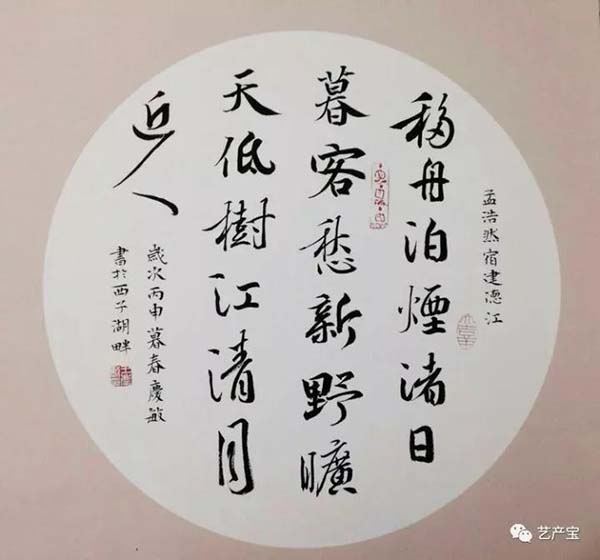 孟浩然宿建德江
移舟泊煙渚日
暮客愁新野曠
天低樹江清月
近人
歲次丙申暮春慶敏
書於西子湖畔
艺产宝